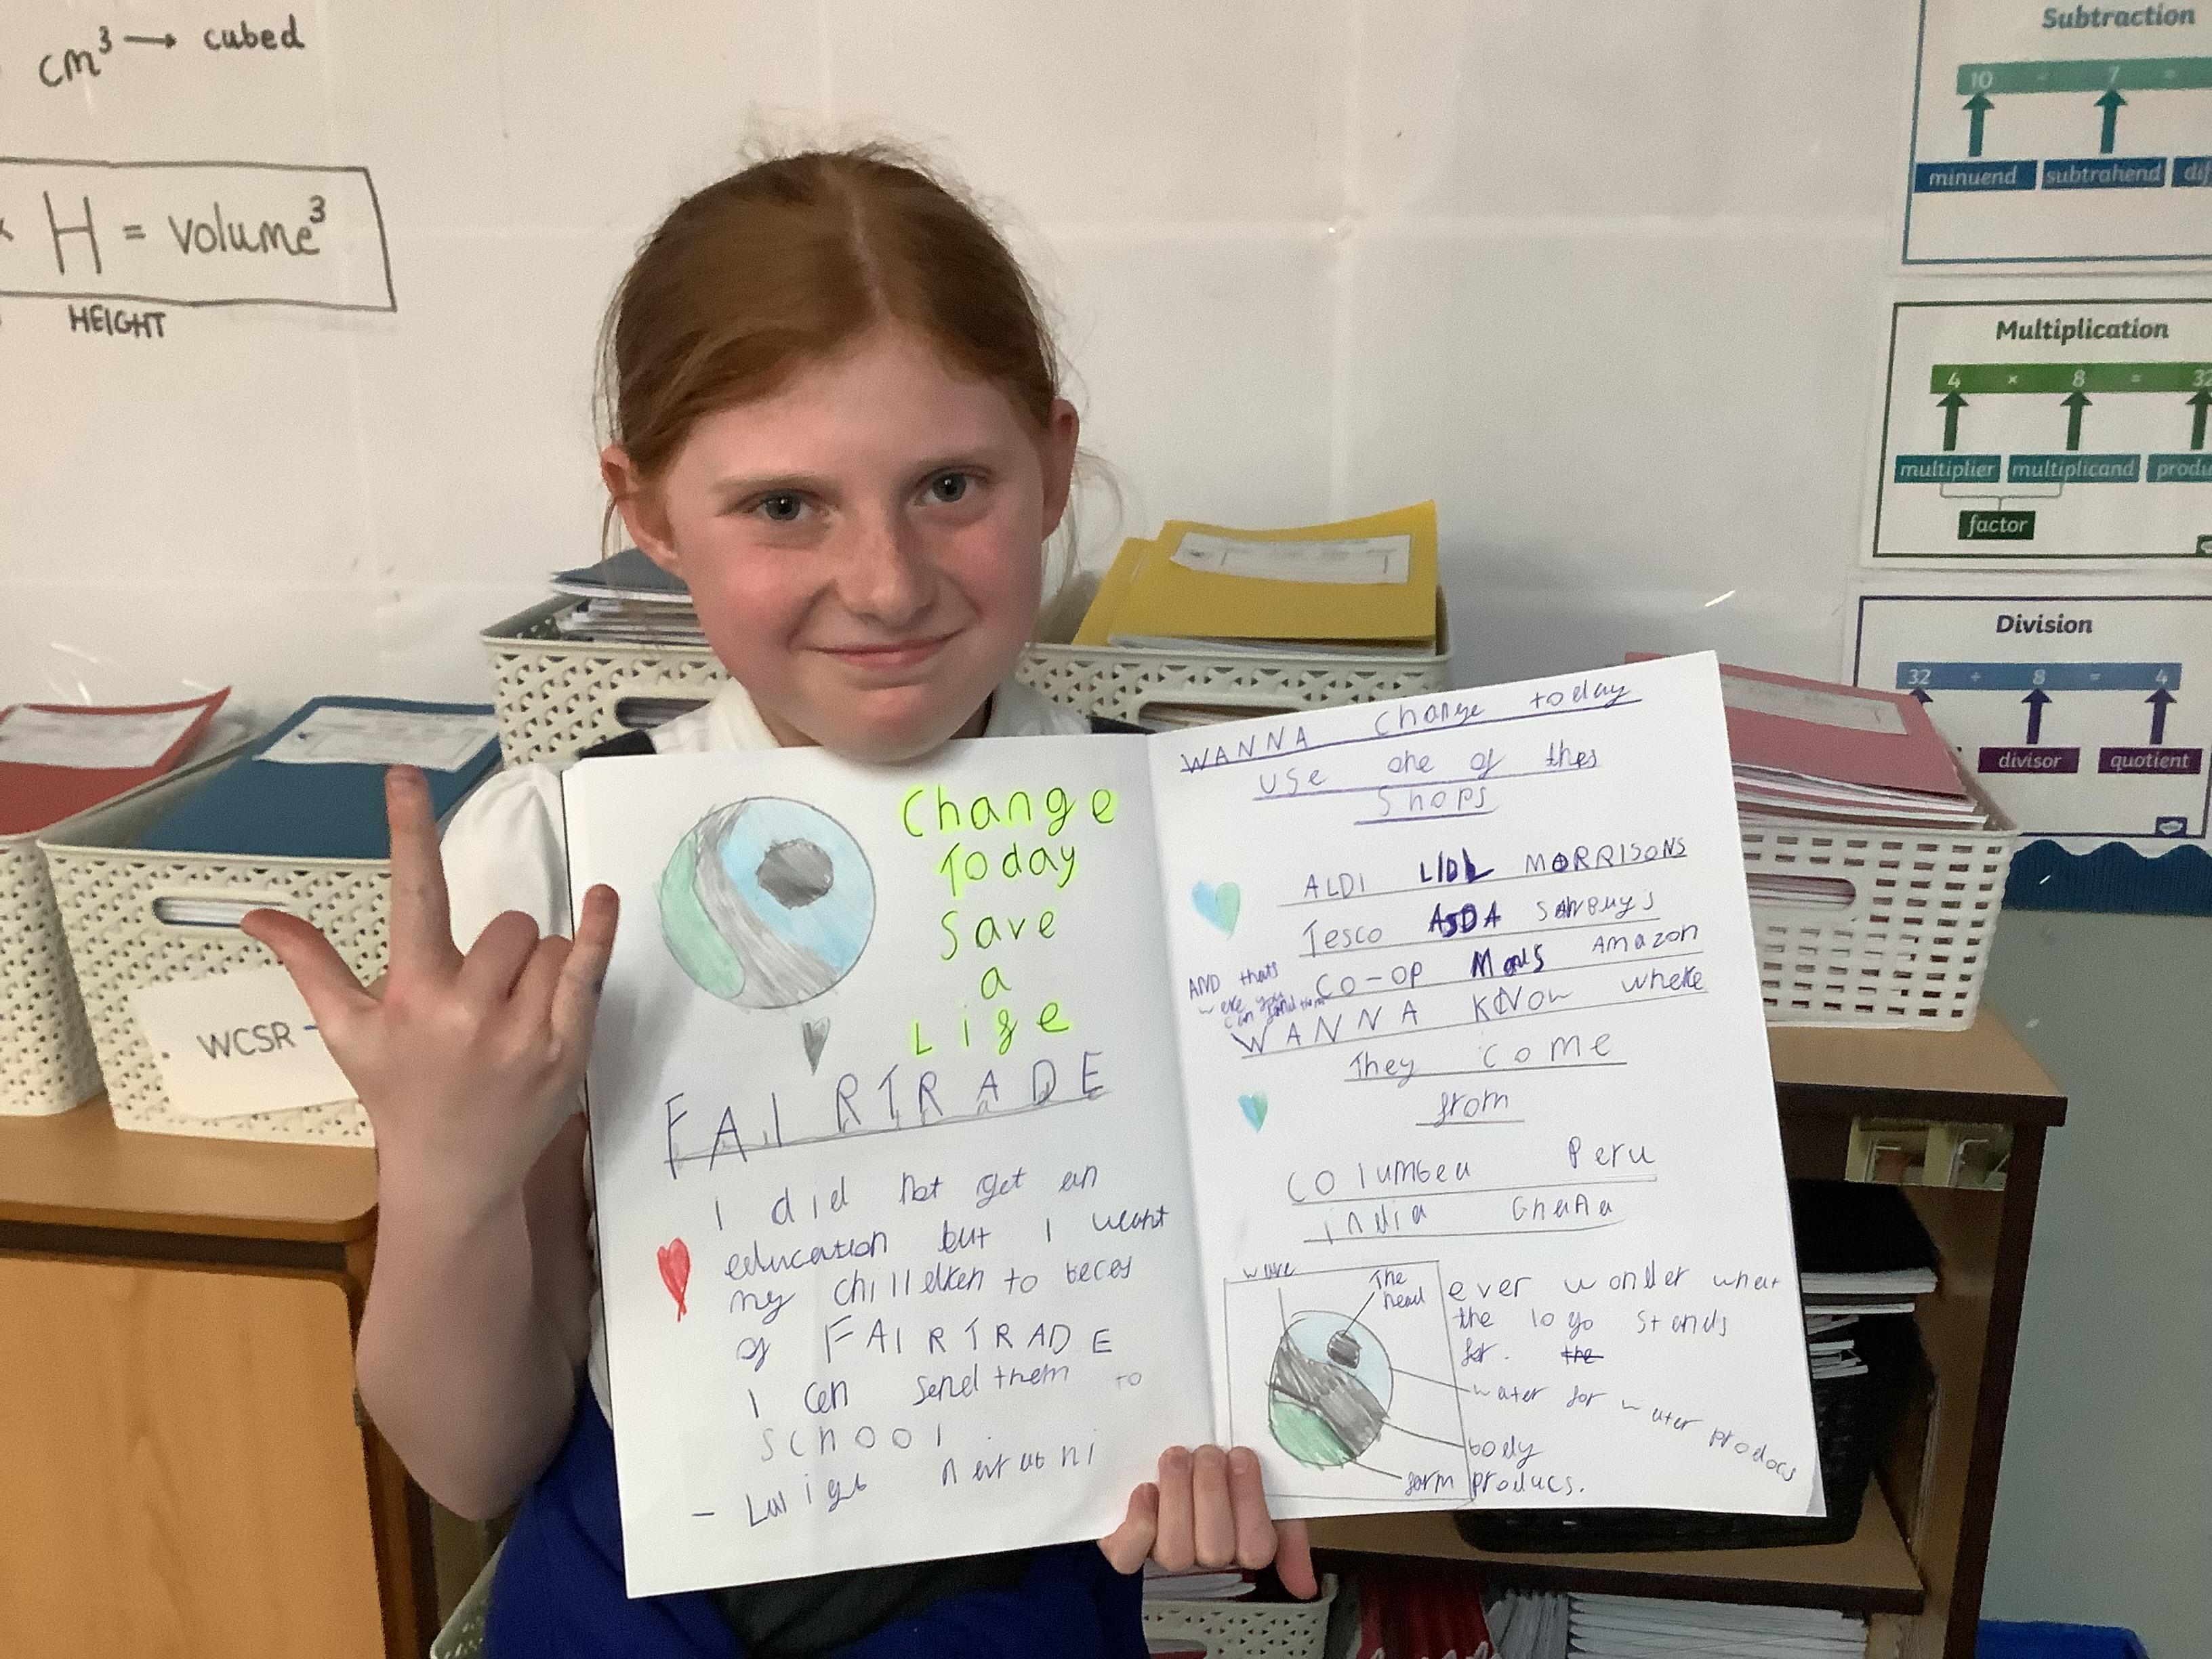 cm³ → cubed
H = volume³
HEIGHT
Subtraction
10 - 7 =
minuend subtrahend
Multiplication
4 × 8 = 32
multiplier multiplicand
factor
Division
32 ÷ 8 = 4
divisor quotient
WCSR
Change
Today
Save
a
Life
FAIRTRADE
I did not get an
education but I want
my chilldren to beces
of FAIRTRADE
I can send them to
school.
WANNA Change today
use one of thes
Shops
ALDI LIDL MORRISONS
Tesco ASDA
AND thats
were you
can find them
CO-OP Amazon
WANNA KNOW where
They come
from
Columbea Peru
india Ghana
The
head
ever wonder what
the logo stands
for. the
water for water prodocs
body
farm producs.